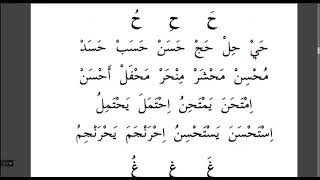 حَ حِ حُ
حَيْ حِلْ حَجْ حَسَنْ حَسَبْ حَسَدْ
مُحْسِنْ مَحْشَرْ مِنْحَرْ مَحْفَلْ أَحْسَنْ
اِمْتَحَنَ يَمْتَحِنُ اِحْتَمَلَ يَحْتَمِلُ
اِسْتَحْسَنَ يَسْتَحْسِنُ اِحْرَنْجَمَ يَحْرَنْجِمُ
غَ غِ غُ